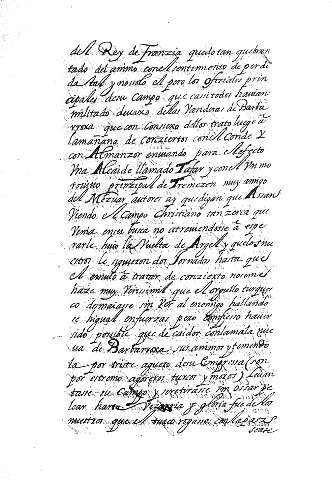 del Rey de Franzia quedo tan quebran
tado del animo con el sentimiento de perdi
da tal y no solo el pero los ofiziales prin
cipales de su Campo que casi todos havian
militado devaxo de las Vanderas de Barba
rroxa que con Consexo dellos trato luego a
la mañana de conziertos con el Conde y
con Almanzor enviando para Efecto
Vna Alcaide llamado Tafar y con el Vn mo
prinzipal de Tremezen muy amigo
del Mezuar autores ay que digan que
Viendo el Campo Christiano tan zerca que
Venia en su busca no atreviendose a espe
rarle huio la Vuelta de Argel y que los nu
estros le siguieron dos Jornadas hasta que
el a tratar de conzierto no se me
haze muy Verisimil que el orgullo turques
co desmaiase sin ver al enemigo hallando
se higual en fuerzas pero confieso haver
sido posible que de caidos con la mala nue
va de Barbarroxa sus animos y temiendo
la por triste aguero de su Empresa
por estremo agoreros turcos y moros
tase su Campo y retirarse sin osar pe
lear harta Vitoria y gloria fue de los
nuestros que el turco regane con las